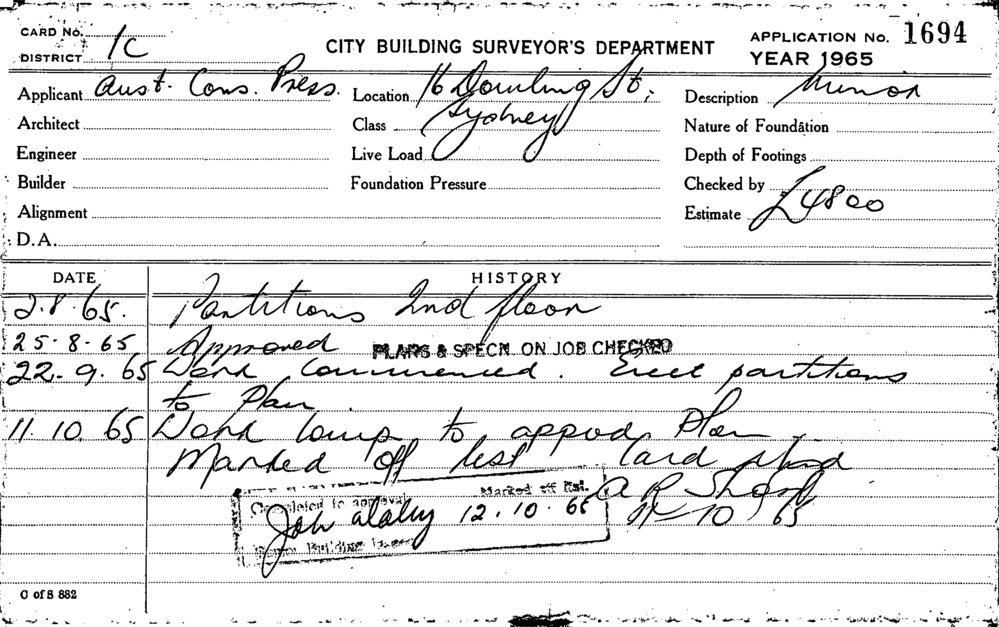 CARD No.
DISTRICT 1C
CITY BUILDING SURVEYOR'S DEPARTMENT
APPLICATION No. 1694
YEAR 1965
Applicant Aust. Cons. Press.
Location 16 Dowling St,
Sydney
Description Minor
Architect
Class
Nature of Foundation
Engineer
Live Load
Depth of Footings
Builder
Foundation Pressure
Checked by
Alignment
Estimate £4800
D.A.
DATE HISTORY
2.8.65. Partitions 2nd floor
25-8-65 Approved PLANS & SPECN. ON JOB CHECKED
22.9.65 Work Commenced. Erect partitions
to Plan.
11.10.65 Work Comp to approd Plan.
Marked off list Card
Completed to approval Marked off list. A R
12.10.65 11-10-65
Building
C of S 882